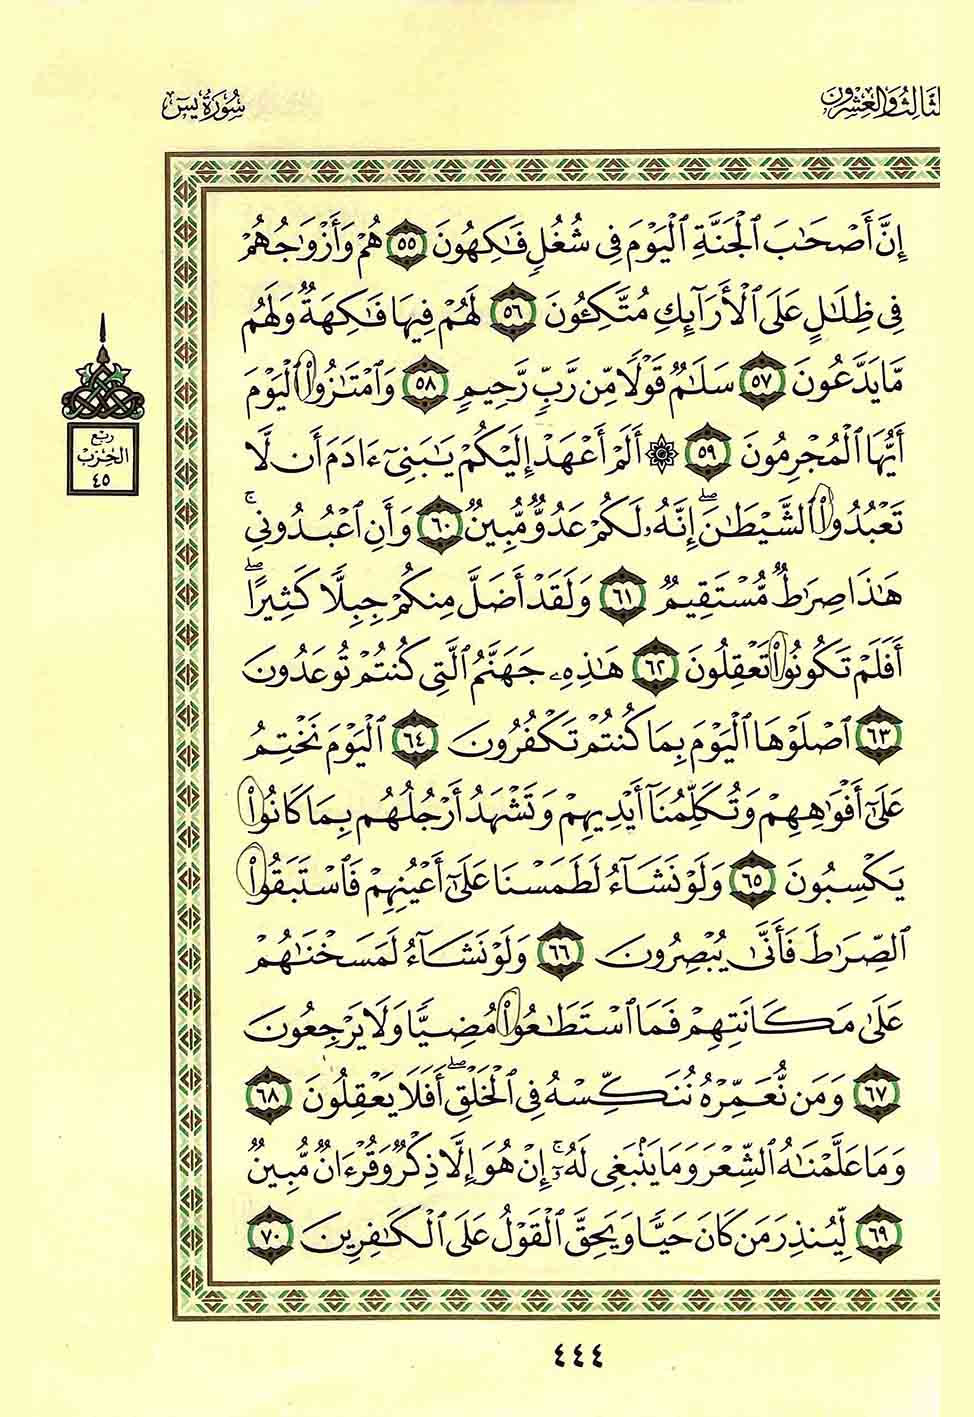 لثالث والعشرون
سُورَةُ يسٓ
إِنَّ أَصْحَٰبَ ٱلْجَنَّةِ ٱلْيَوْمَ فِى شُغُلٍ فَٰكِهُونَ ٥٥ هُمْ وَأَزْوَٰجُهُمْ
فِى ظِلَٰلٍ عَلَى ٱلْأَرَآئِكِ مُتَّكِـُٔونَ ٥٦ لَهُمْ فِيهَا فَٰكِهَةٌ وَلَهُم
مَّا يَدَّعُونَ ٥٧ سَلَٰمٌ قَوْلًا مِّن رَّبٍّ رَّحِيمٍ ٥٨ وَٱمْتَٰزُوا۟ ٱلْيَوْمَ
أَيُّهَا ٱلْمُجْرِمُونَ ٥٩ ۞ أَلَمْ أَعْهَدْ إِلَيْكُمْ يَٰبَنِىٓ ءَادَمَ أَن لَّا
تَعْبُدُوا۟ ٱلشَّيْطَٰنَ ۖ إِنَّهُۥ لَكُمْ عَدُوٌّ مُّبِينٌ ٦٠ وَأَنِ ٱعْبُدُونِى ۚ
هَٰذَا صِرَٰطٌ مُّسْتَقِيمٌ ٦١ وَلَقَدْ أَضَلَّ مِنكُمْ جِبِلًّا كَثِيرًا ۖ
أَفَلَمْ تَكُونُوا۟ تَعْقِلُونَ ٦٢ هَٰذِهِۦ جَهَنَّمُ ٱلَّتِى كُنتُمْ تُوعَدُونَ
٦٣ ٱصْلَوْهَا ٱلْيَوْمَ بِمَا كُنتُمْ تَكْفُرُونَ ٦٤ ٱلْيَوْمَ نَخْتِمُ
عَلَىٰٓ أَفْوَٰهِهِمْ وَتُكَلِّمُنَآ أَيْدِيهِمْ وَتَشْهَدُ أَرْجُلُهُم بِمَا كَانُوا۟
يَكْسِبُونَ ٦٥ وَلَوْ نَشَآءُ لَطَمَسْنَا عَلَىٰٓ أَعْيُنِهِمْ فَٱسْتَبَقُوا۟
ٱلصِّرَٰطَ فَأَنَّىٰ يُبْصِرُونَ ٦٦ وَلَوْ نَشَآءُ لَمَسَخْنَٰهُمْ
عَلَىٰ مَكَانَتِهِمْ فَمَا ٱسْتَطَٰعُوا۟ مُضِيًّا وَلَا يَرْجِعُونَ
٦٧ وَمَن نُّعَمِّرْهُ نُنَكِّسْهُ فِى ٱلْخَلْقِ ۖ أَفَلَا يَعْقِلُونَ ٦٨
وَمَا عَلَّمْنَٰهُ ٱلشِّعْرَ وَمَا يَنۢبَغِى لَهُۥٓ ۚ إِنْ هُوَ إِلَّا ذِكْرٌ وَقُرْءَانٌ مُّبِينٌ
٦٩ لِّيُنذِرَ مَن كَانَ حَيًّا وَيَحِقَّ ٱلْقَوْلُ عَلَى ٱلْكَٰفِرِينَ ٧٠
ربع
الحزب
٤٥
٤٤٤